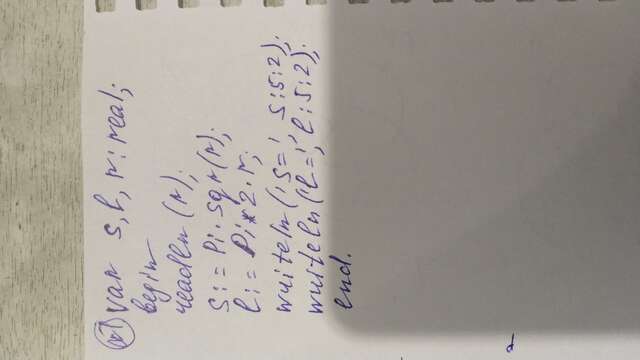 №1 var s, l, r: real;
begin
readln (r);
s:= Pi · sqr(r);
l:= Pi*2·r;
writeln ('s=', s:5:2);
writeln ('l=', l:5:2);
end.